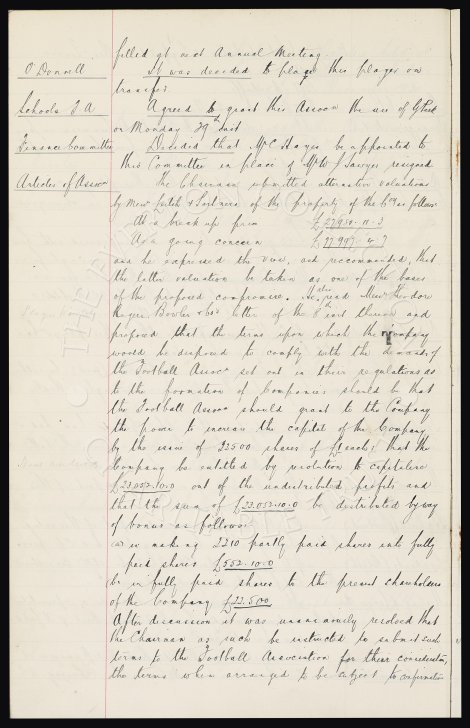 filled at next Annual Meeting
O'Donnell
It was decided to place this player on
transfer
Schools F A
Agreed to grant this Assocn the use of G Park
on Monday 29th inst
Finance Committee
Decided that Mr C Hayes be appointed to
this Committee in place of Mr W J Sawyer resigned
Articles of Assocn
The Chairman submitted alternative valuations
by Messrs & Partners of the property of the Coy as follows
As a break up firm
£27950-11-3
As a going concern
£37997-4-3
and he expressed the view, and recommended, that
the latter valuation be taken as one of the bases
of the proposed compromise. He also read Messrs Theodore
Rogers Bowler & Co's letter of the 8th inst thereon and
proposed that the terms upon which the Company
would be disposed to comply with the demands of
the Football Assocn set out in their regulations as
to the formation of Companies should be that
the Football Assocn should grant to the Company
the power to increase the capital of the Company
by the issue of 22500 shares of £1 each: that the
Company be entitled by resolution to capitalise
£23.052.10.0 out of the undistributed profits and
that the sum of £23.052.10.0 be distributed by way
of bonus as follows:-
(a) in making 2210 partly paid shares into fully
paid shares £552.10.0
(b) in fully paid shares to the present shareholders
of the Company £22.500
After discussion it was unanimously resolved that
the Chairman as such be instructed to submit such
terms to the Football Association for their consideration,
the terms when arranged to be subject to confirmation